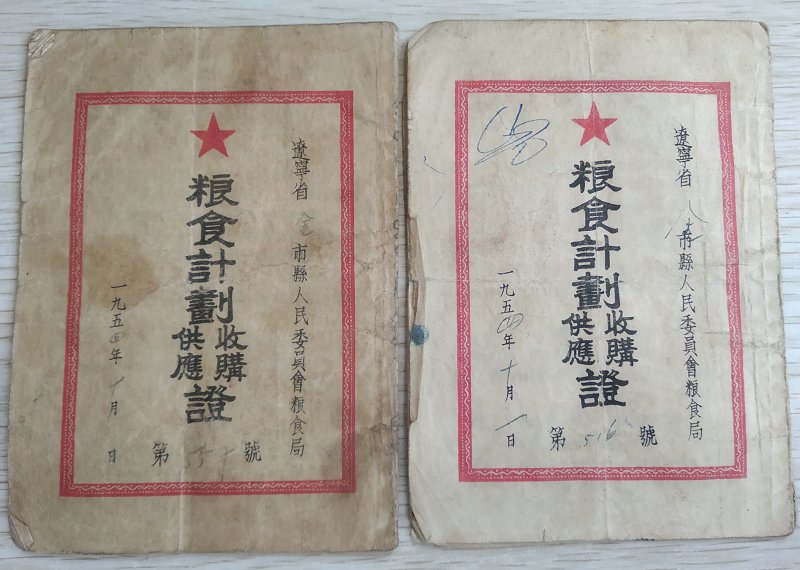 遼寧省 金 市縣人民委員會粮食局
粮食計劃收購供應證
一九五四年十月 日
第 號
遼寧省 市縣人民委員會粮食局
粮食計劃收購供應證
一九五四年十月一日
第 516 號